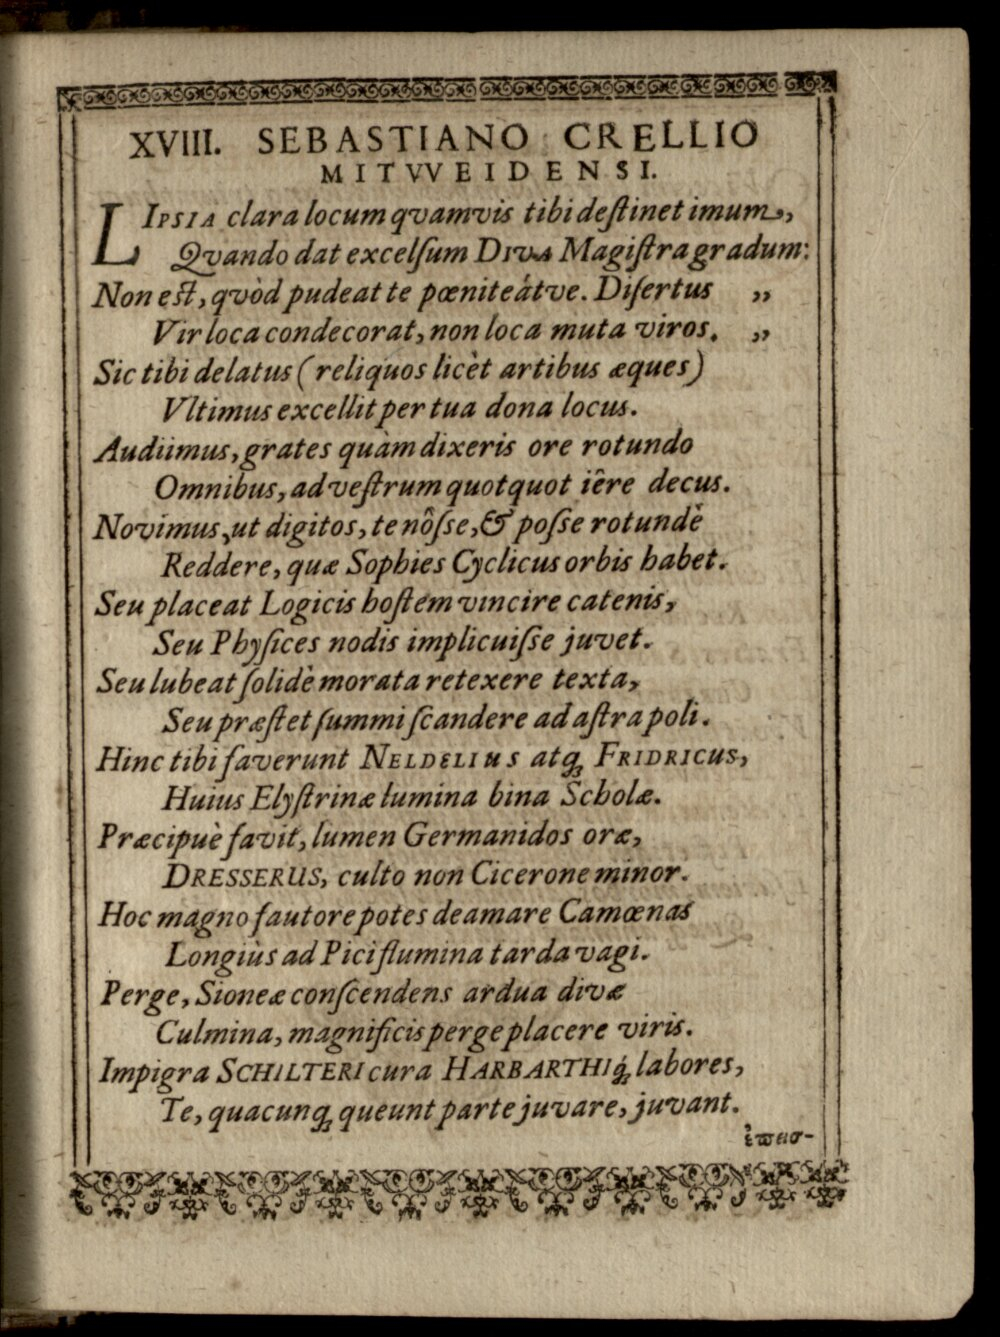 XVIII. SEBASTIANO CRELLIO
MITVVEIDENSI.
LIPSIA clara locum qvamvis tibi deſtinet imum,
Qvando dat excelſum DIVA Magiſtra gradum:
Non eſt, qvòd pudeat te pœniteátve. Diſertus „
Vir loca condecorat, non loca muta viros. „
Sic tibi delatus (reliquos licèt artibus æques)
Vltimus excellit per tua dona locus.
Audiimus, grates quàm dixeris ore rotundo
Omnibus, ad veſtrum quotquot iêre decus.
Novimus, ut digitos, te nôſſe, & poſſe rotundè
Reddere, quæ Sophies Cyclicus orbis habet.
Seu placeat Logicis hoſtem vincire catenis,
Seu Phyſices nodis implicuiſſe juvet.
Seu lubeat ſolidè morata retexere texta,
Seu præſtet ſummi ſcandere ad aſtra poli.
Hinc tibi faverunt NELDELIUS atq́ꝫ FRIDRICUS,
Huius Elyſtrinæ lumina bina Scholæ.
Præcipuè favit, lumen Germanidos oræ,
DRESSERUS, culto non Cicerone minor.
Hoc magno fautore potes deamare Camœnas
Longiùs ad Pici flumina tarda vagi.
Perge, Sioneæ conſcendens ardua divæ
Culmina, magnificis perge placere viris.
Impigra SCHILTERI cura HARBARTHIq́ꝫ labores,
Te, quacunqꝫ queunt parte juvare, juvant.